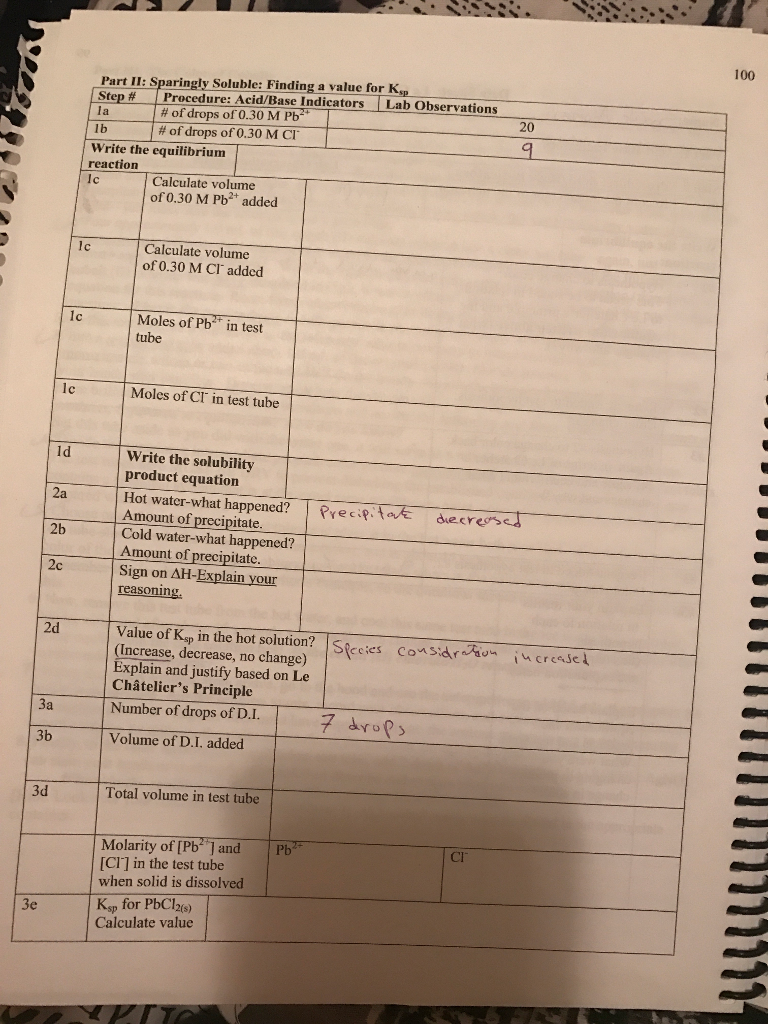 100
Part II: Sparingly Soluble: Finding a value for Ksp
Step # Procedure: Acid/Base Indicators Lab Observations
1a # of drops of 0.30 M Pb²⁺ 20
1b # of drops of 0.30 M Cl⁻ 9
Write the equilibrium
reaction
1c Calculate volume
of 0.30 M Pb²⁺ added
1c Calculate volume
of 0.30 M Cl⁻ added
1c Moles of Pb²⁺ in test
tube
1c Moles of Cl⁻ in test tube
1d Write the solubility
product equation
2a Hot water-what happened? Precipitate decreased
Amount of precipitate.
2b Cold water-what happened?
Amount of precipitate.
2c Sign on ΔH-Explain your
reasoning.
2d Value of Ksp in the hot solution? Species considration increased
(Increase, decrease, no change)
Explain and justify based on Le
Châtelier's Principle
3a Number of drops of D.I. 7 drops
3b Volume of D.I. added
3d Total volume in test tube
Molarity of [Pb²⁺] and Pb²⁺ Cl⁻
[Cl⁻] in the test tube
when solid is dissolved
3e Ksp for PbCl2(s)
Calculate value